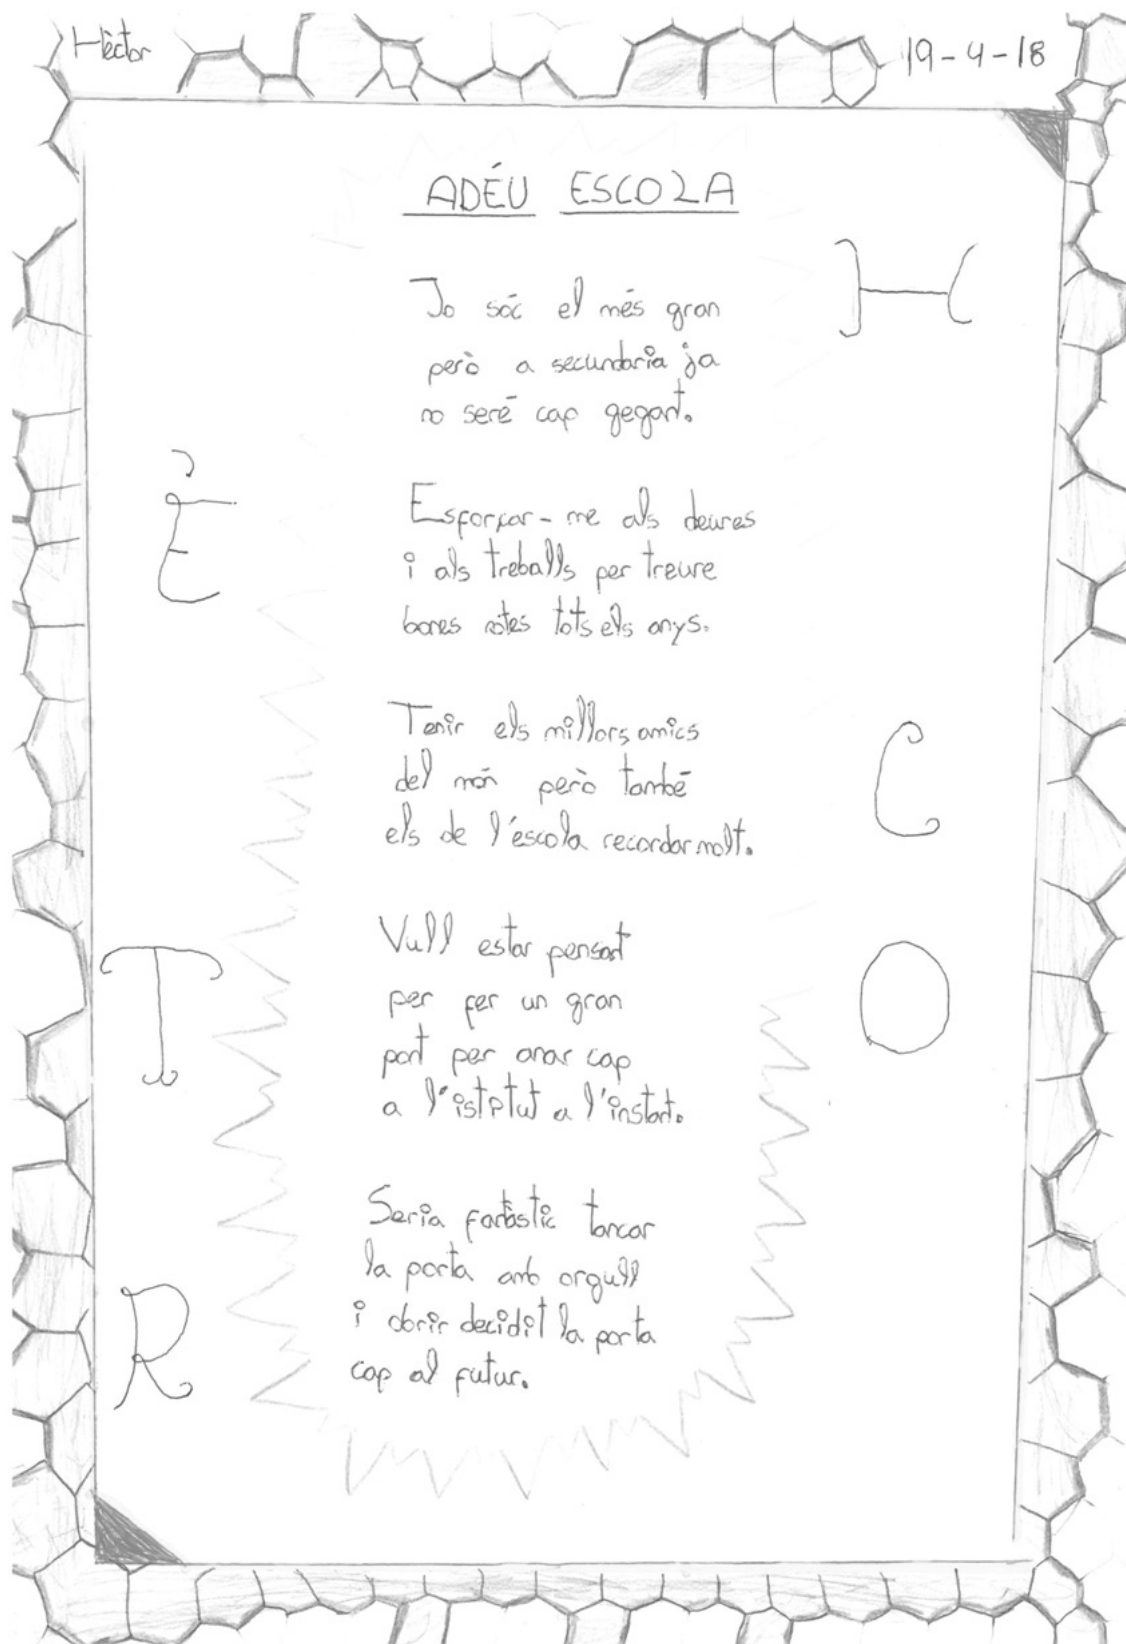 Hèctor
19-4-18
ADÉU ESCOLA
Jo sóc el més gran
però a secundaria ja
no seré cap gegant.
H
È
Esforçar-me als deures
i als treballs per treure
bones notes tots els anys.
Tenir els millors amics
del món però també
els de l'escola recordar molt.
C
T
Vull estar pensant
per fer un gran
pont per anar cap
a l'istitut a l'instant.
O
Seria fantàstic tancar
la porta amb orgull
i obrir decidit la porta
cap al futur.
R